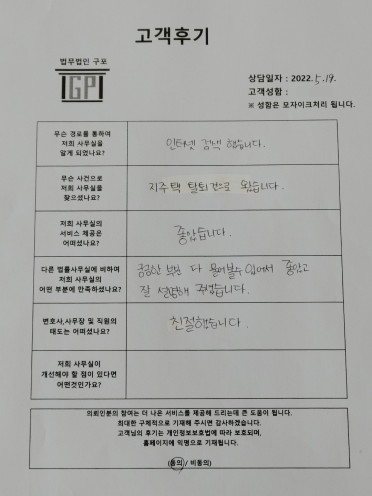 고객후기
법무법인 구포
GP
상담일자 : 2022. 5. 19.
고객성함 :
※ 성함은 모자이크처리 됩니다.
무슨 경로를 통하여
저희 사무실을
알게 되었나요?
인터넷 검색 했습니다.
무슨 사건으로
저희 사무실을
찾으셨나요?
지주택 탈퇴건으로 왔습니다.
저희 사무실의
서비스 제공은
어떠셨나요?
좋았습니다.
다른 법률사무실에 비하여
저희 사무실의
어떤 부분에 만족하셨나요?
궁금한 부분 다 물어볼수 있어서 좋았고
잘 설명해 주셨습니다.
변호사,사무장 및 직원의
태도는 어떠셨나요?
친절했습니다.
저희 사무실이
개선해야 할 점이 있다면
어떤것인가요?
의뢰인분의 참여는 더 나은 서비스를 제공해 드리는데 큰 도움이 됩니다.
최대한 구체적으로 기재해 주시면 감사하겠습니다.
고객님의 후기는 개인정보보호법에 따라 보호되며,
홈페이지에 익명으로 기재됩니다.
(동의 / 비동의)